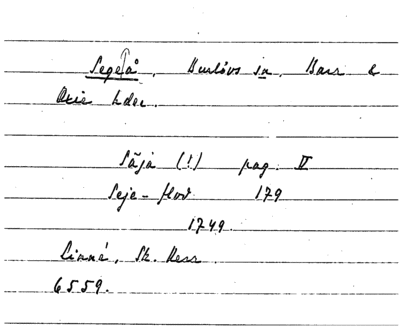 Segeå, Burlövs sn, Bara &
Oxie hder.
Säjä (!) pag. IV
Seje-flod 179
1749.
Linné, Sk. Resa
6559.